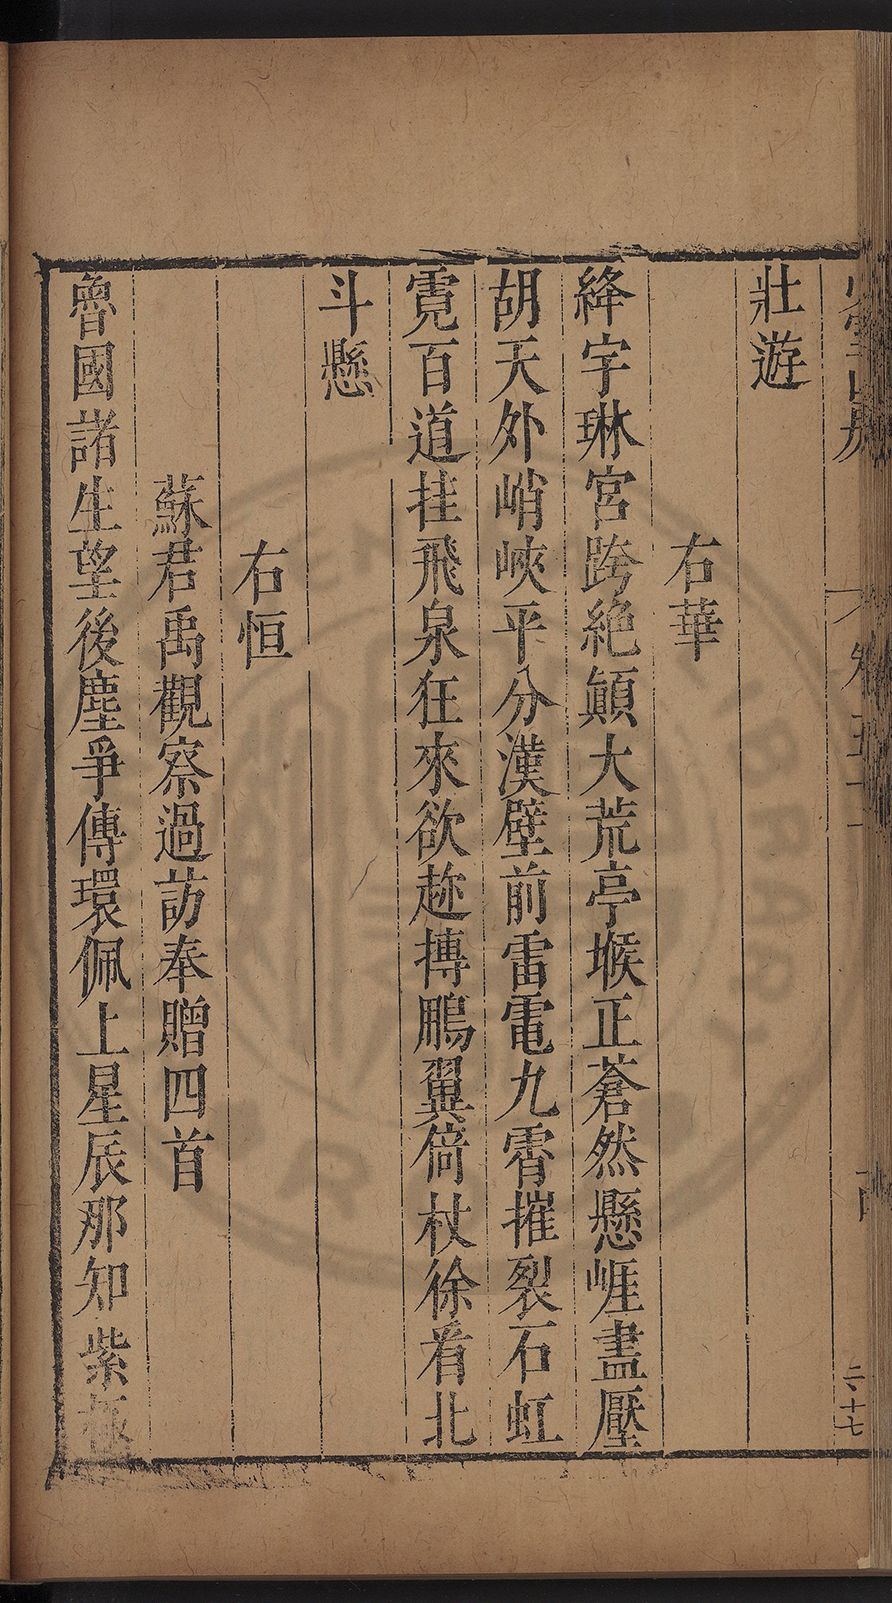 壯遊
右華
絳宇琳宮跨絶顚大荒亭堠正蒼然懸崕盡壓
胡天外峭峽平分漢壁前雷電九霄摧裂石虹
霓百道挂飛泉狂來欲趂摶鵬翼倚杖徐看北
斗懸
右恒
蘇君禹觀察過訪奉贈四首
魯國諸生望後塵爭傳環佩上星辰那知紫極